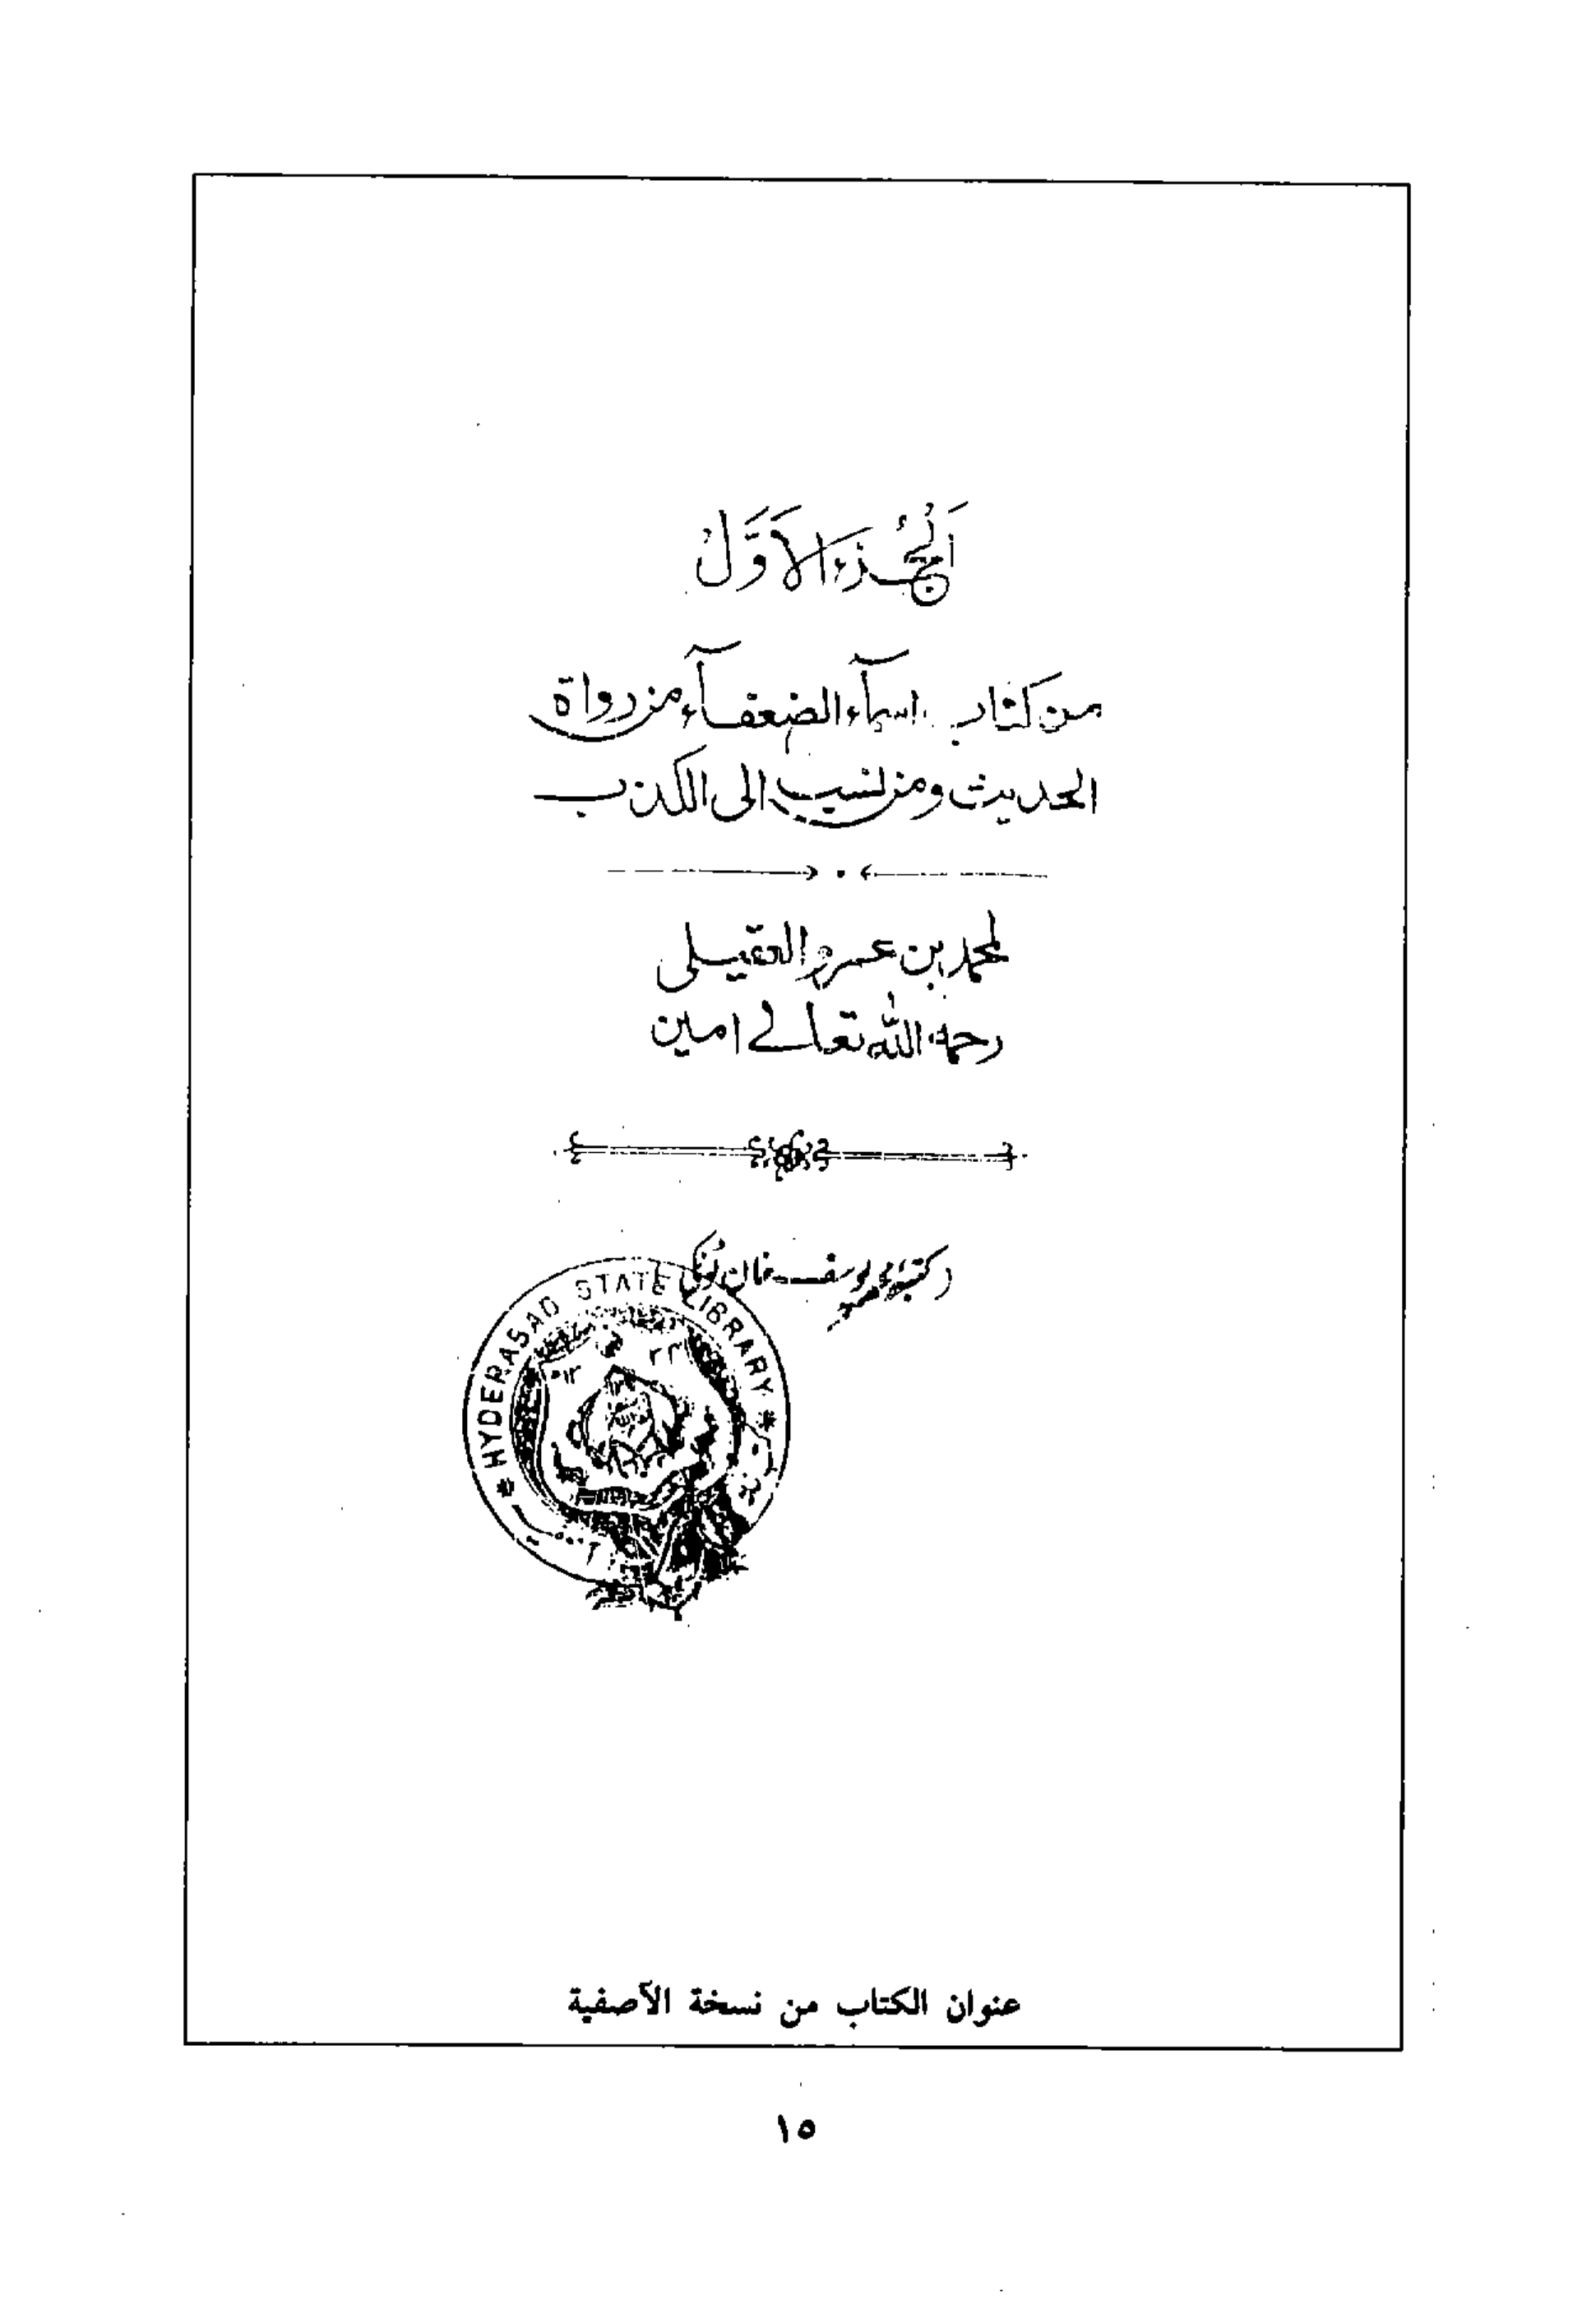 اَلْجُزءُ الاَوَّلُ
من كتاب اسمآء الضعفآء من رواة
الحديث ومن نسب الى الكذب
لمحمد بن عمرو العقيلى
رحمه الله تعالے امين
يوسف خان ٹونكى
HYDERABAD STATE LIBRARY
عنوان الكتاب من نسخة الآصفية
١٥